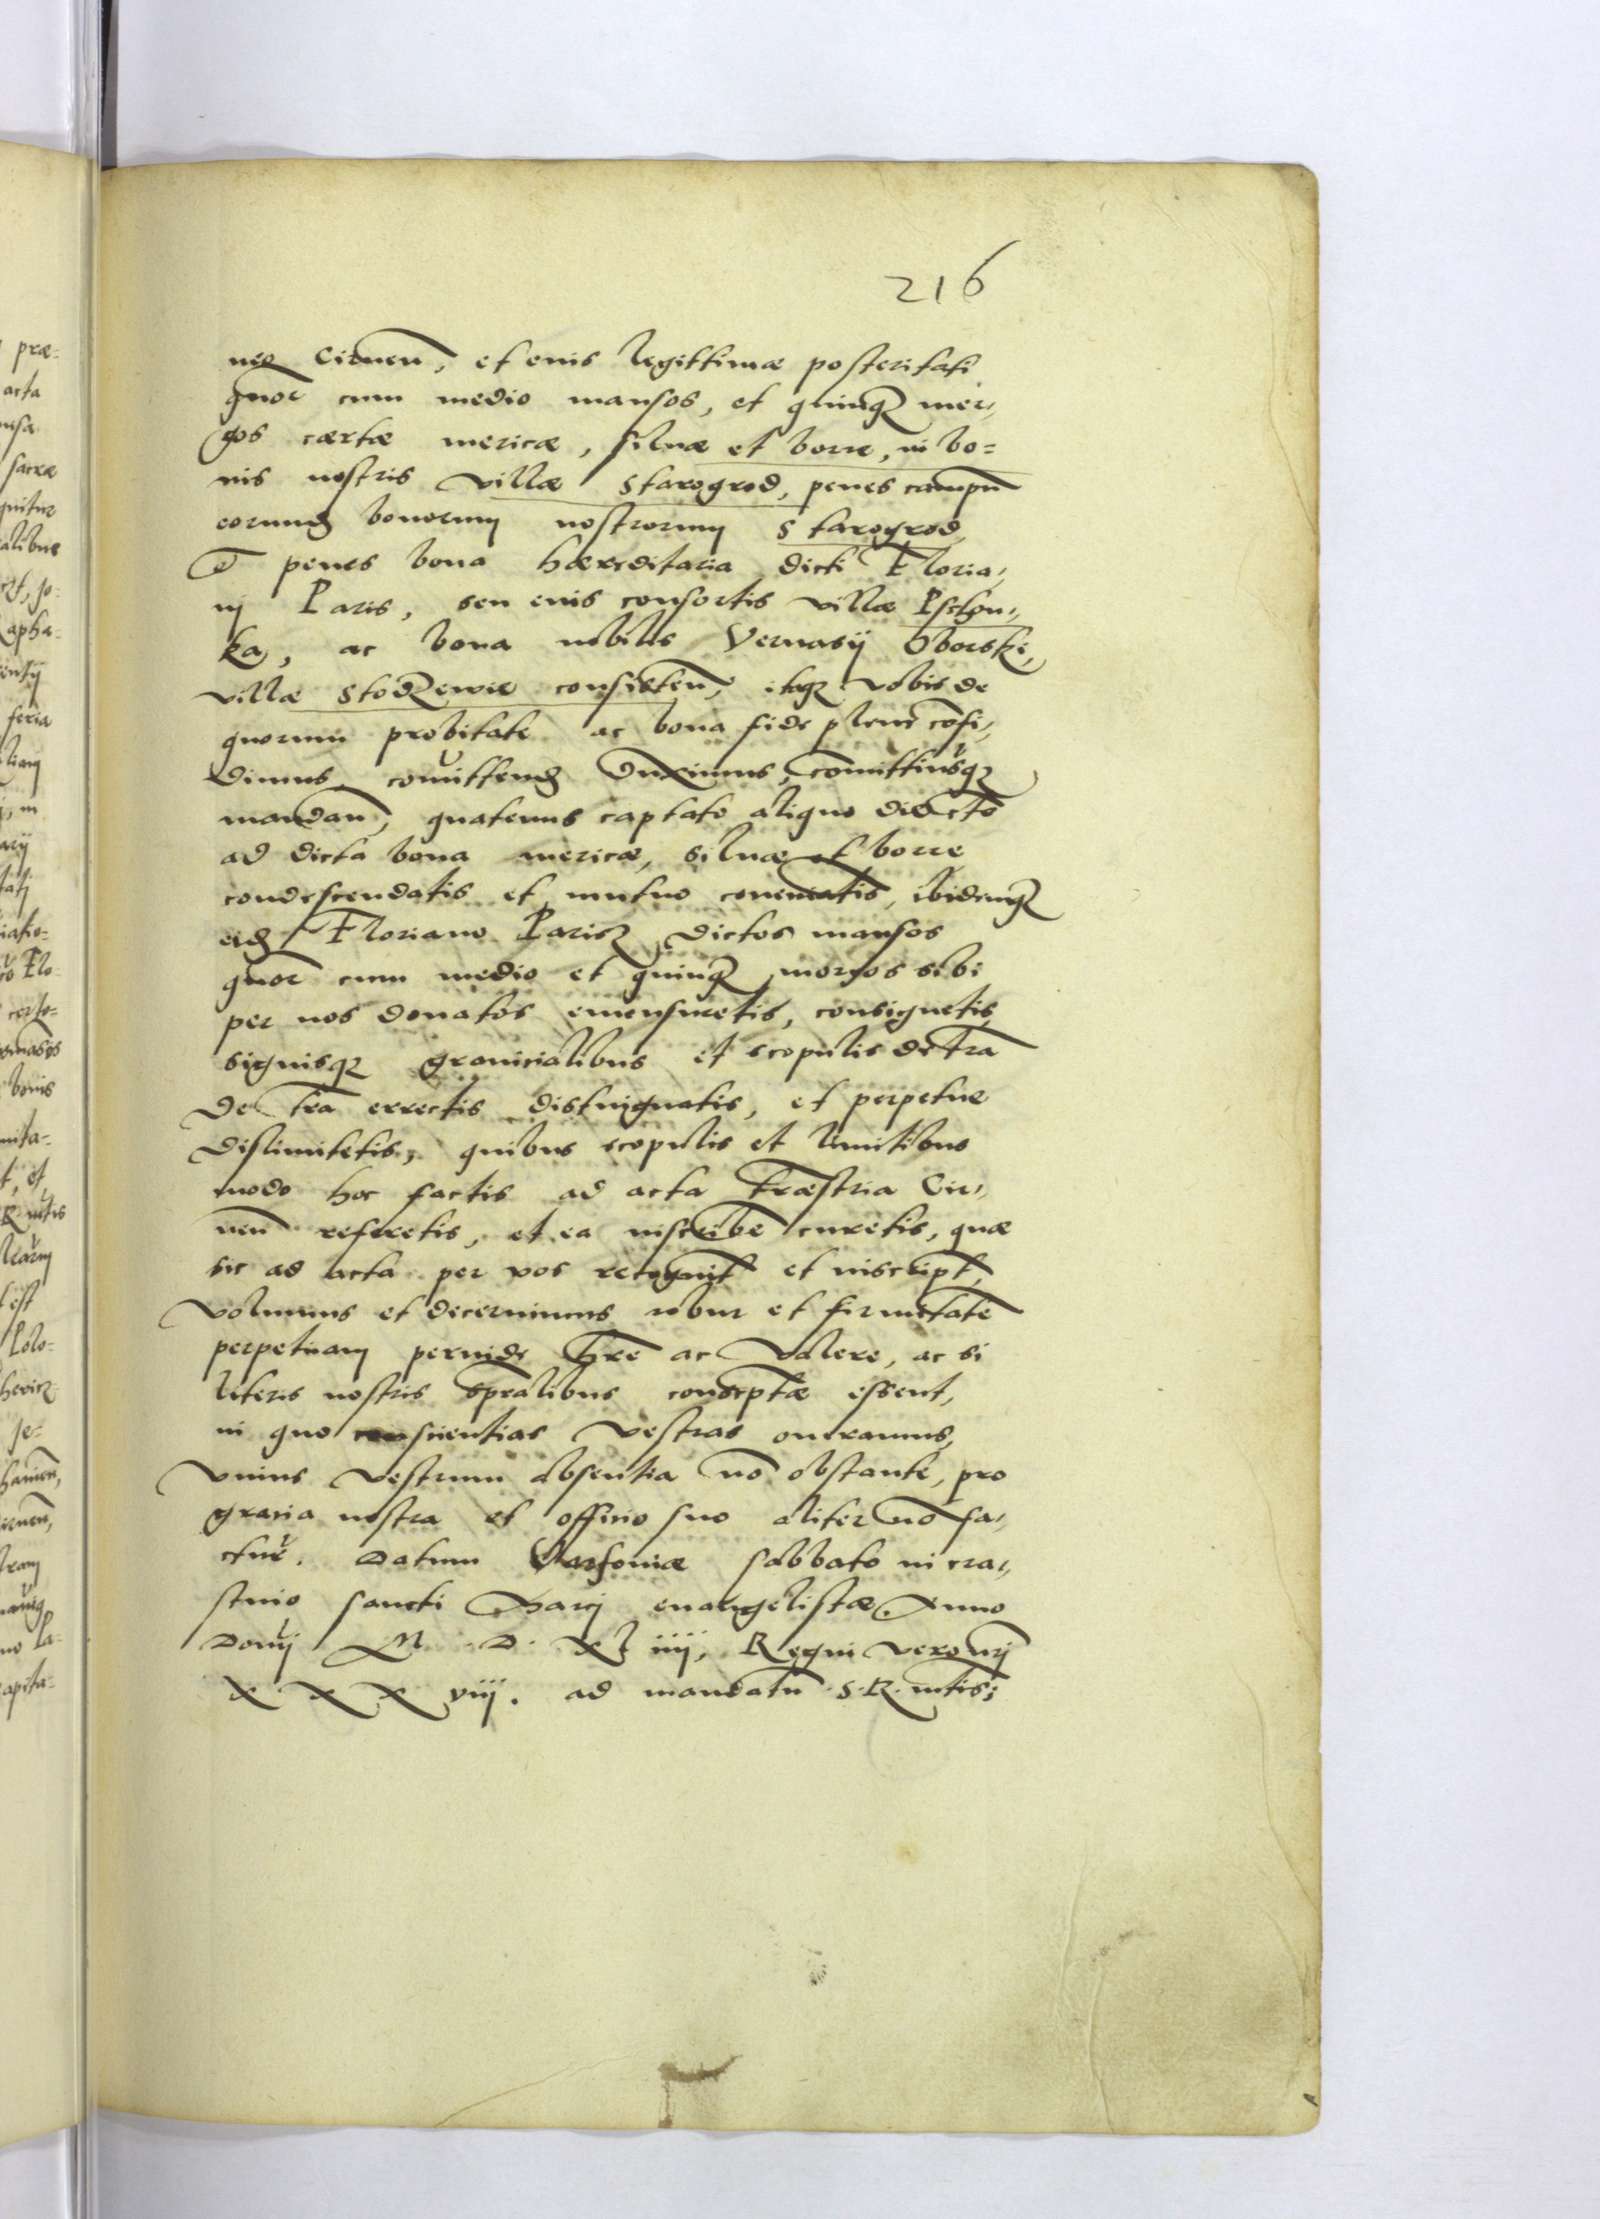 216
neo Cirnen̄, et eius legittimæ posteritati
quor cum medio mansos, et quinq₃ mer,
gos cærtæ mericæ, siluæ et borre, in bo=
nis nostris villæ Starogrod, penes campū
eorund bonorum nostrorum Starogrod
penes bona hæreditaria dicti Floria,
nj Paris, seu eius consortis villæ Psclon,
ka, ac bona nobilis Vernasij Oborski,
villæ Stodzewie consisten̄, itaq₃ vobis de
quorum probitate ac bona fide plene cōfi,
dimus, comittend duximus, comittimusq₃
mandan̄, quatenus captato aliquo die certo
ad dicta bona mericæ, siluæ et borre
condescendatis et mutuo conveniatis, ibidemq₃
eid Floriano Paris dictos mansos
quor cum medio et quinq₃ morgos sibi
per nos donatos emensuretis, consignetis,
signisq₃ granicialibus et scopulis de tra
de tra errectis distinguatis, et perpetue
dislimitetis, quibus scopulis et limitibus
modo hoc factis ad acta træstria Cir,
nen̄ referetis, et ea inscribe curetis, quæ
sic ad acta per vos recognit et inscript,
volumus et decernimus robur et firmitatē
perpetuam perinde hre ac valere, ac si
literis nostris spēalibus conscptæ essent,
in quo conscientias vestras oneramus,
vnius vestrum absentia nō obstante, pro
gratia nostra et officio suo aliter nō fa,
ctur. Datum Varsouiæ sabbato in cra,
stino sancti Marcj euangelistæ, Anno
Domj M D XL iiij, Regni vero nrj
X X X viij. ad mandatū S. R. mtis;